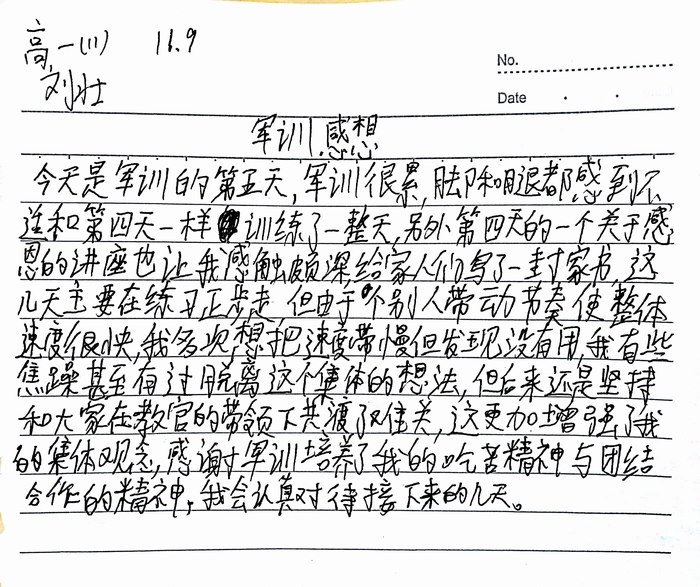 高一(11) 11.9
No.
刘壮
Date
军训感想
今天是军训的第五天,军训很累,脚和腿都感到不
适和第四天一样训练了一整天,另外第四天的一个关于感
恩的讲座也让我感触颇深,给家人们写了一封家书,这
几天主要在练习正步走,但由于个别人带动节奏使整体
速度很快,我多次想把速度带慢但发现没有用,我有些
焦躁甚至有过脱离这个集体的想法,但后来还是坚持
和大家在教官的带领下共渡难关,这更加增强了我
的集体观念,感谢军训培养了我的吃苦精神与团结
合作的精神,我会认真对待接下来的几天。